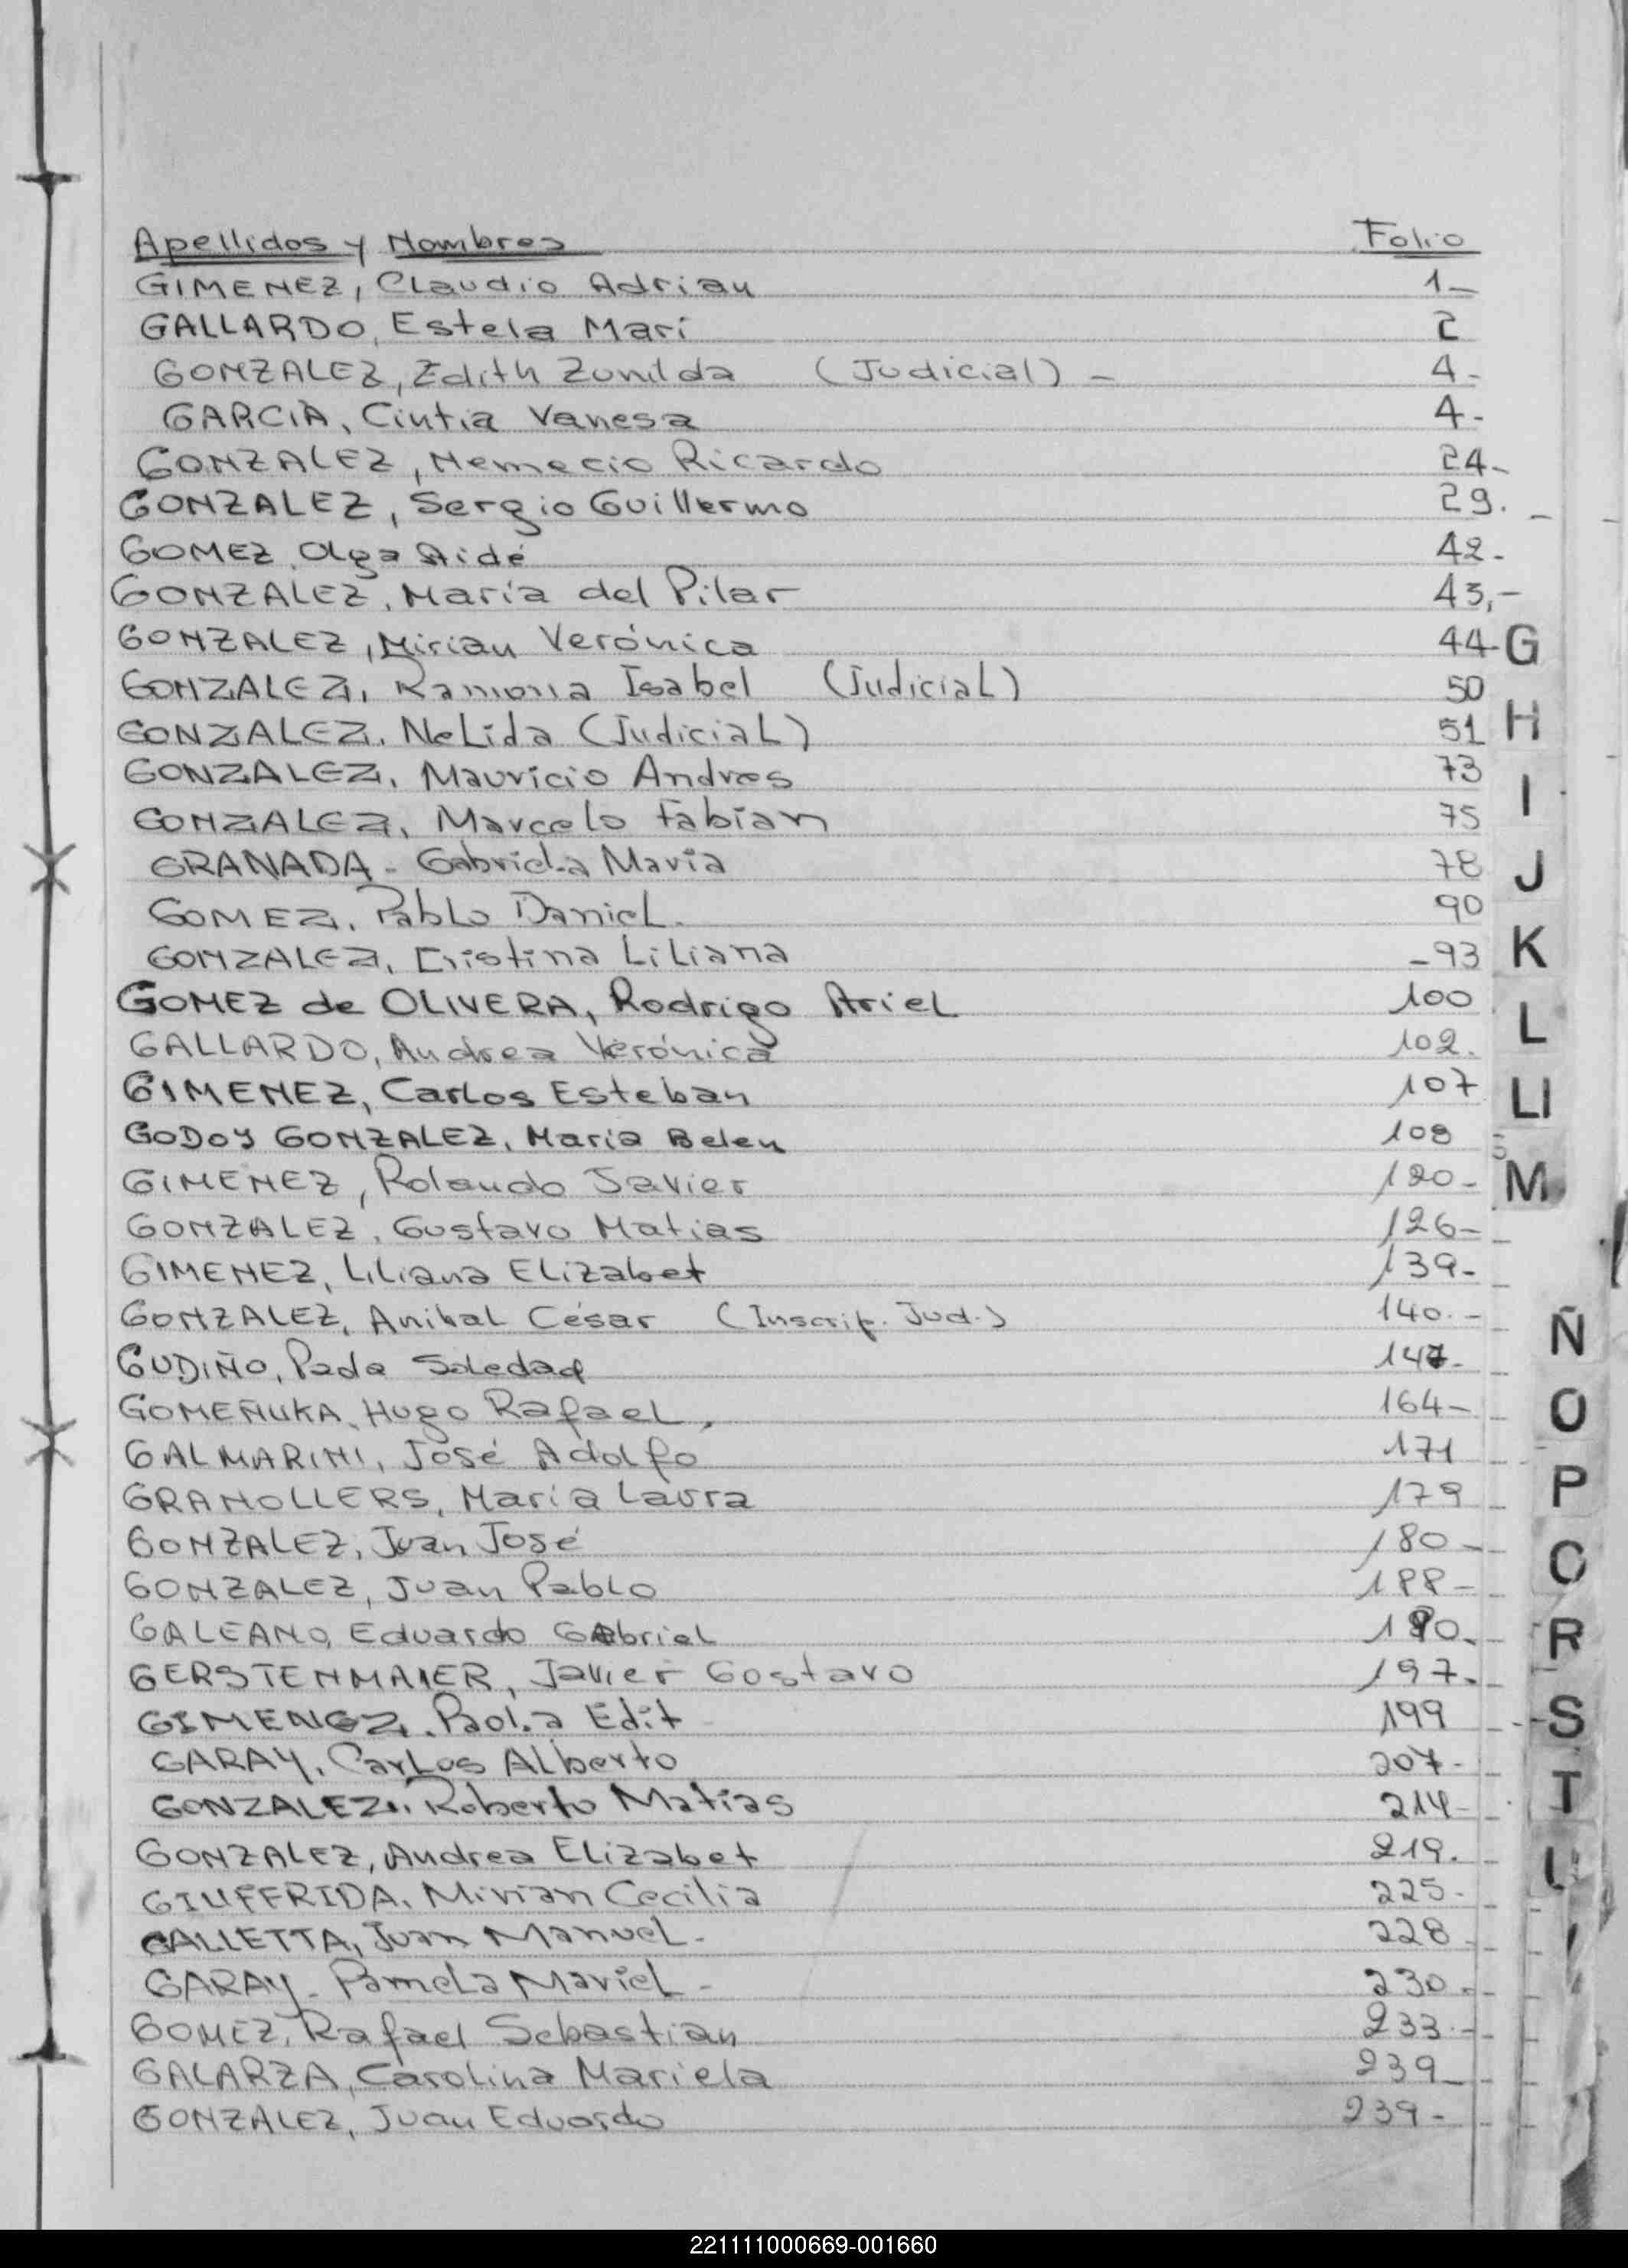 Apellidos y Nombres Folio
GIMENEZ, Claudio Adrian 1-
GALLARDO, Estela Mari 2
GONZALEZ, Edith Zunilda (Judicial) - 4-
GARCIA, Cintia Vanesa 4-
GONZALEZ, Nemecio Ricardo 24-
GONZALEZ, Sergio Guillermo 29.-
GOMEZ, Olga Aidé 42-
GONZALEZ, María del Pilar 43,-
GONZALEZ, Mirian Verónica 44-
GONZALEZ, Ramona Isabel (Judicial) 50
GONZALEZ, Nelida (Judicial) 51
GONZALEZ, Mauricio Andres 73
GONZALEZ, Marcelo Fabian 75
GRANADA - Gabriela Maria 78
GOMEZ, Pablo Daniel. 90
GONZALEZ, Cristina Liliana -93
GOMEZ de OLIVERA, Rodrigo Ariel 100
GALLARDO, Andrea Verónica 102.
GIMENEZ, Carlos Esteban 107
GODOY GONZALEZ, María Belen 108
GIMENEZ, Rolando Javier 120-
GONZALEZ, Gustavo Matias 126-
GIMENEZ, Liliana Elizabet 139-
GONZALEZ, Anibal César (Inscrip. Jud.) 140.-
GUDIÑO, Soledad 147-
GOMEÑUKA, Hugo Rafael, 164-
GALMARINI, José Adolfo 171
GRANOLLERS, María Laura 179
GONZALEZ, Juan José 180-
GONZALEZ, Juan Pablo 188-
GALEANO, Eduardo Gabriel
GERSTENMAIER, Javier Gustavo 197.-
GIMENEZ, Paola Edit 199
GARAY, Carlos Alberto 207-
GONZALEZ, Roberto Matias 214-
GONZALEZ, Andrea Elizabet 219.
GIUFFRIDA, Mirian Cecilia 225-
GALLETTA, Juan Manuel- 228
GARAY- Pamela Mariel- 230.-
GOMEZ, Rafael Sebastian 233.-
GALARZA, Carolina Mariela 239-
GONZALEZ, Juan Eduardo 239-
G
H
I
J
K
L
Ll
M
Ñ
O
P
R
S
T
221111000669-001660